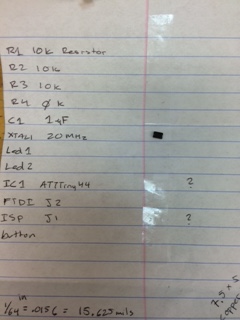 R1 10k Resistor
R2 10k
R3 10k
R4 0 k
C1 1uF
XTAL1 20MHz
Led 1
Led 2
IC1 ATTTiny44 ?
FTDI J2
ISP J1 ?
button
7.5 x 5
copper
in
1/64 = .0156 = 15.625 mils